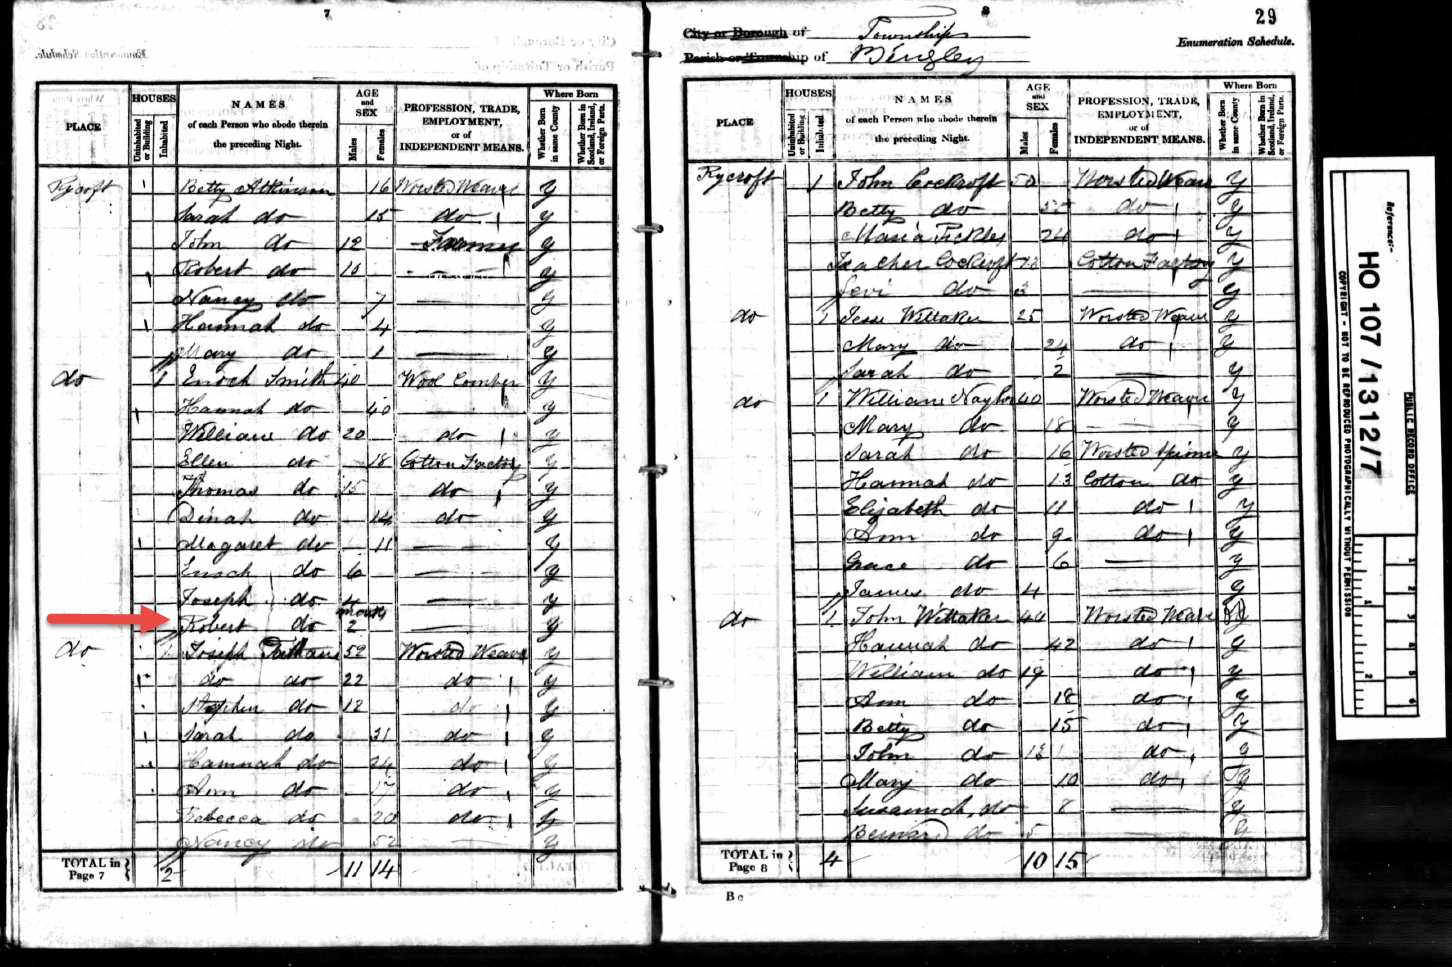 7
PLACE
HOUSES
Uninhabited or Building
Inhabited
NAMES
of each Person who abode therein
the preceding Night.
AGE
and
SEX
Males
Females
PROFESSION, TRADE,
EMPLOYMENT,
or of
INDEPENDENT MEANS.
Where Born
Whether Born in same County
Whether Born in Scotland, Ireland, or Foreign Parts.
Rycroft 1 Betty Atkinson 16 Worsted Weaver y
Sarah do 15 do y
John do 12 Farmer y
Robert do 10 y
Nancy do 7 y
Hannah do 4 y
Mary do 1 y
do 1 Enoch Smith 40 Wool Comber y
Hannah do 40 y
William do 20 do y
Ellen do 18 Cotton Factory y
Thomas do 15 do y
Dinah do 14 do y
Magaret do 11 y
Enoch do 6 y
Joseph do 4 y
Robert do months 2 y
do 1 Joseph 52 Worsted Weaver y
do do 22 do y
Stephen do 12 do y
Sarah do 31 do y
Hannah do 24 do y
Ann do 17 do y
Rebecca do 20 do y
Nancy do 52 y
TOTAL in Page 7 2 11 14
8
29
City or Borough of Township
Parish or Township of Bingley
Enumeration Schedule.
PLACE
HOUSES
Uninhabited or Building
Inhabited
NAMES
of each Person who abode therein
the preceding Night.
AGE
and
SEX
Males
Females
PROFESSION, TRADE,
EMPLOYMENT,
or of
INDEPENDENT MEANS.
Where Born
Whether Born in same County
Whether Born in Scotland, Ireland, or Foreign Parts.
Rycroft 1 John Cockroft 50 Worsted Weaver y
Betty do do y
Maria Pickles 24 do y
Cockroft Cotton Factory y
Levi do 3 y
do 1 Jesse Wittaker 25 Worsted Weaver y
Mary do 24 do y
Sarah do 2 y
do 1 William Naylor 40 Worsted Weaver y
Mary do 18 y
Sarah do 16 Worsted Spinner y
Hannah do 13 Cotton do y
Elizabeth do 11 do y
Ann do 9 do y
Grace do 6 y
James do 4 y
do 1 John Wittaker 44 Worsted Weaver y
Hannah do 42 do y
William do 19 do y
Ann do 18 do y
Betty do 15 do y
John do do y
Mary do 10 do y
Susannah do 8 y
Bernard do 5 y
TOTAL in Page 8 4 10 15
Reference:-
HO 107/1312/7
PUBLIC RECORD OFFICE
COPYRIGHT - NOT TO BE REPRODUCED PHOTOGRAPHICALLY WITHOUT PERMISSION
1
2
3
4
5
6
1
2